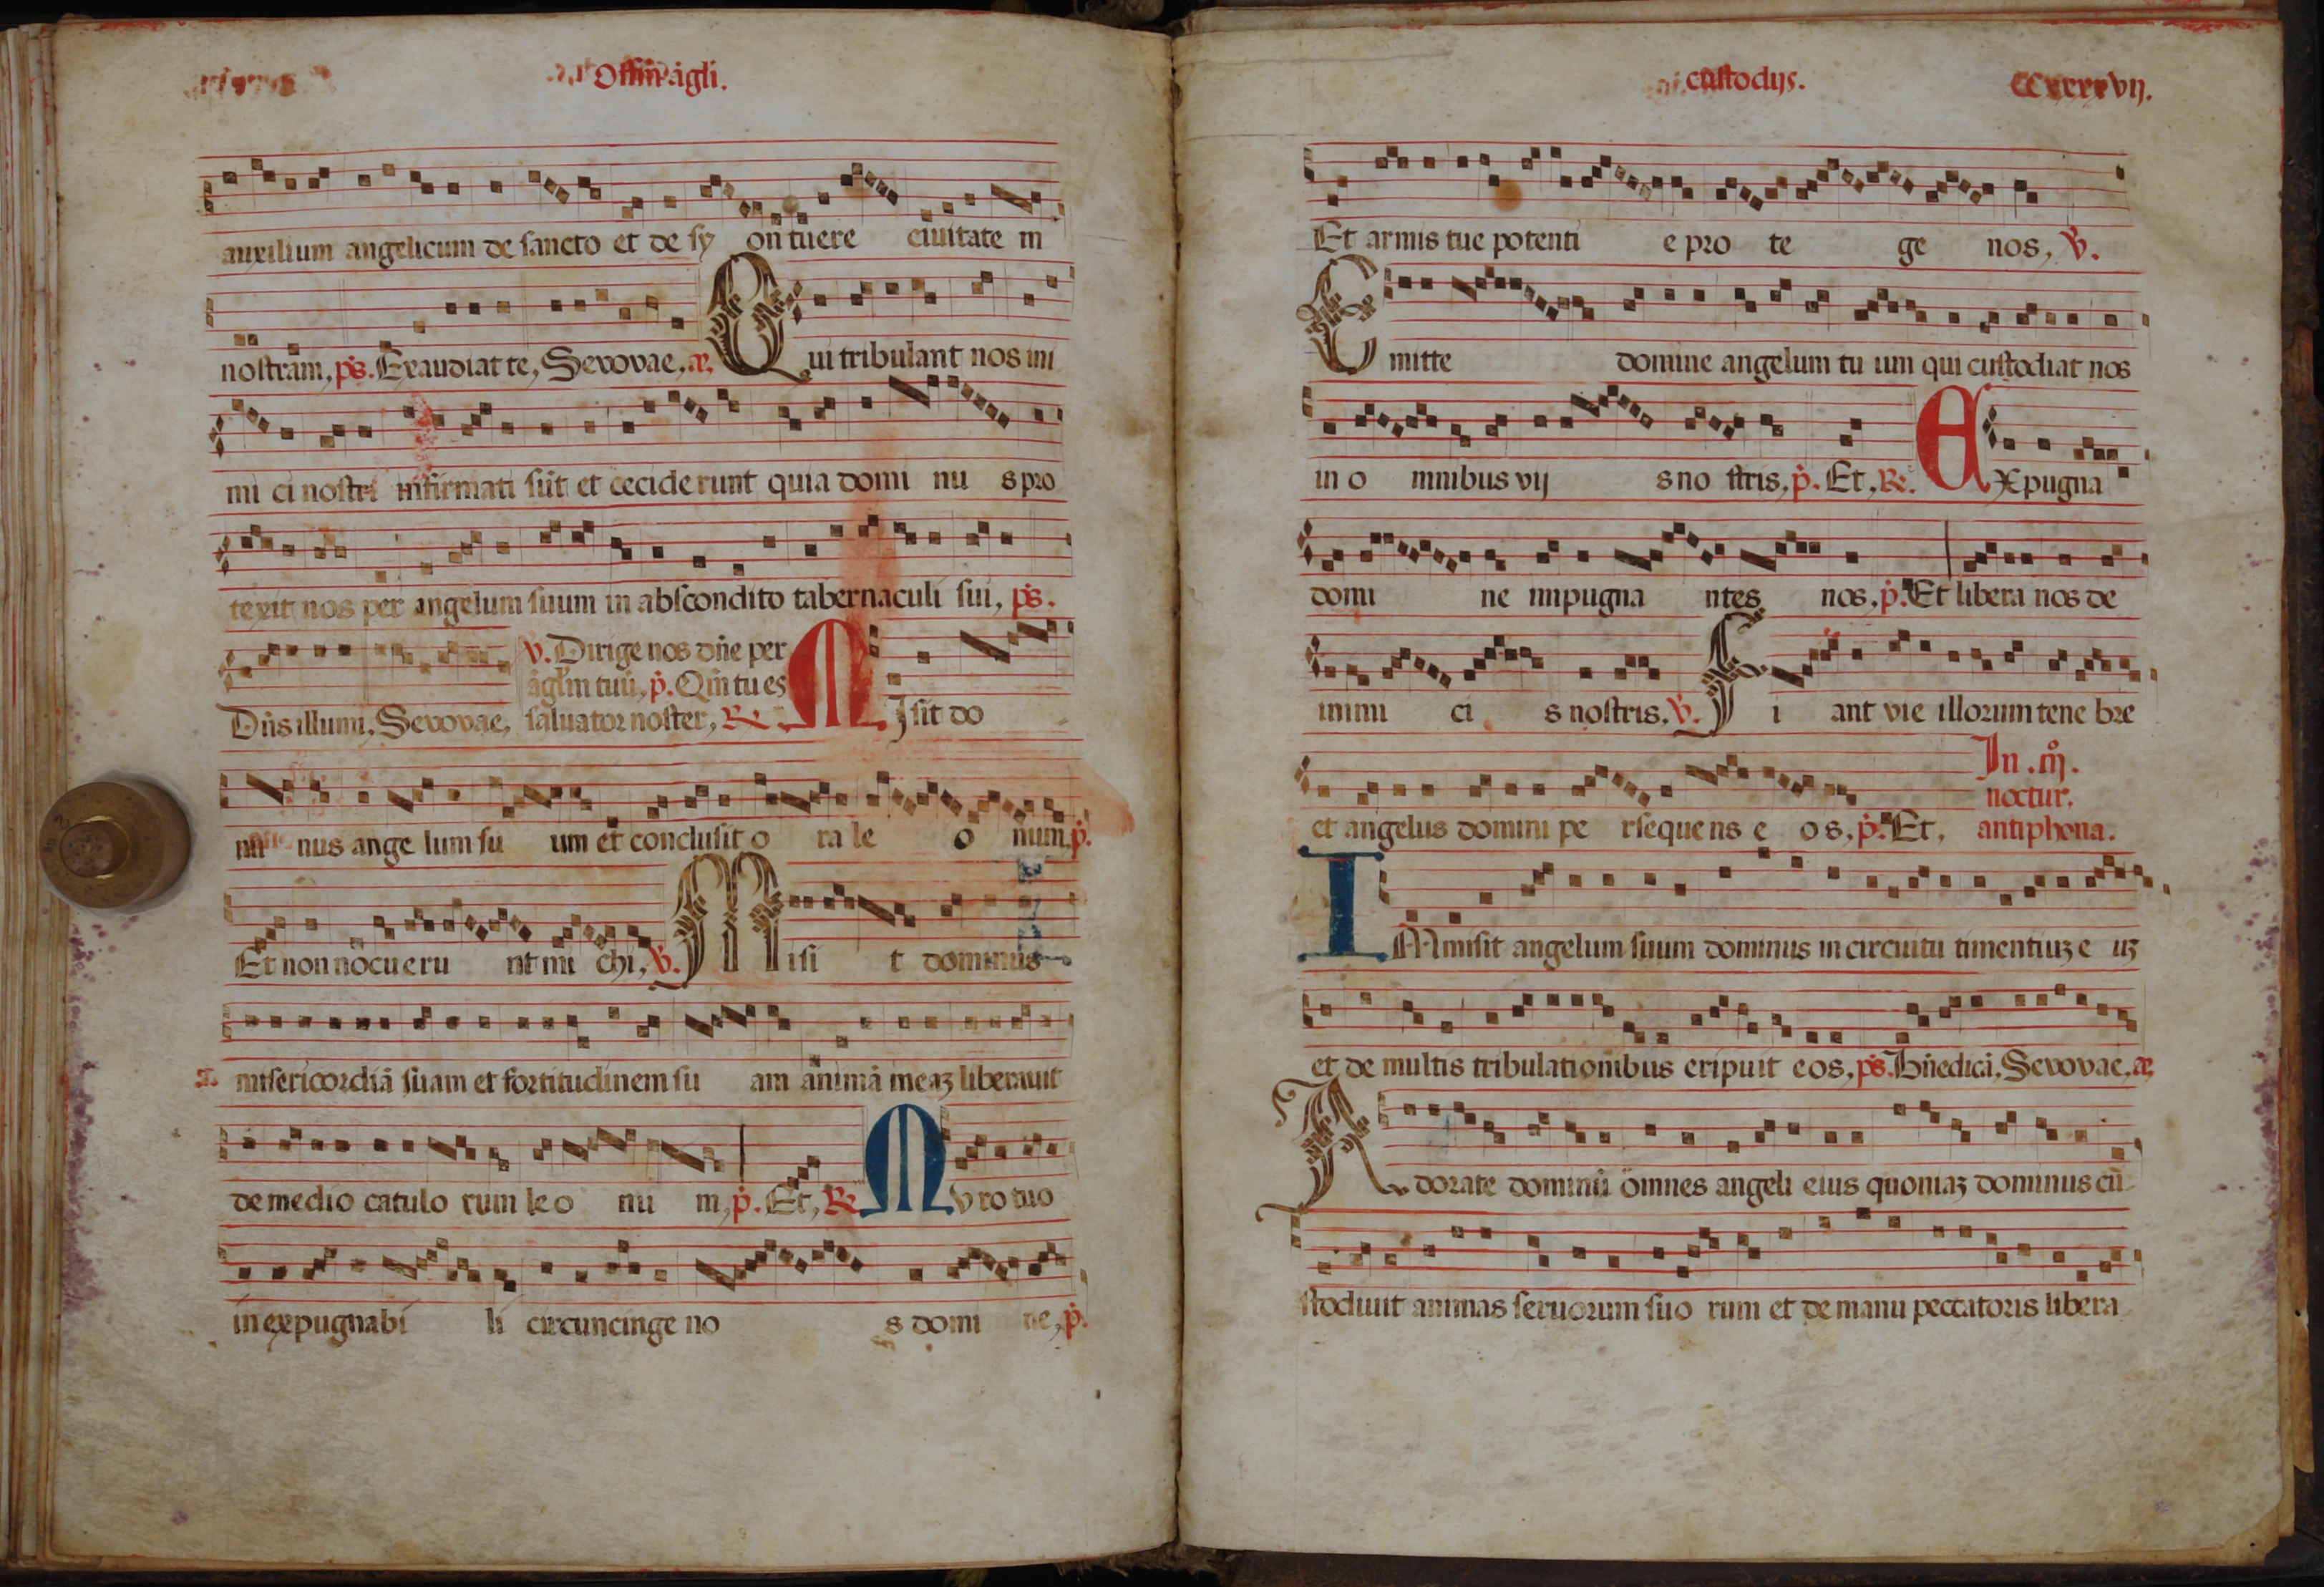 Offm̄ āgli.
auxilium angelicum de sancto et de sy on tuere ciuitate m
nostram, ps̄. Exaudiat te, Seuouae, ae. Qui tribulant nos ini
mi ci nostri infirmati sūt et cecide runt quia domi nu s pro
texit nos per angelum suum in abscondito tabernaculi sui, ps̄.
℣. Dirige nos dn̄e per
āglm̄ tuū, p̄. Qm̄ tu es
Dn̄s illumi, Seuouae, saluator noster, ℟. MIsit do
mi nus ange lum su um et conclusit o ra le o num, p̄.
Et non nocueru nt mi chi, ℣. Misi t dominus
misericordiā suam et fortitudinem su am animā meaꝫ liberauit
de medio catulo rum leo nu m, p̄. Et, ℟. MVro tuo
inexpugnabi li circuncinge no s domi ne, p̄.
custodijs. CCxxxxvij.
Et armis tue potenti e pro te ge nos, ℣.
Emitte domine angelum tu um qui custodiat nos
in o mnibus vij s no stris, p̄. Et, ℟. EXpugna
domi ne impugna ntes nos, p̄. Et libera nos de
inimi ci s nostris, ℣. Fi ant vie illorum tene bre
et angelus domini pe rseque ns e os, p̄. Et,
In .iij.
noctur.
antiphona.
IMmisit angelum suum dominus in circuitu timentiuꝫ e uꝫ
et de multis tribulationibus eripuit eos, ps̄. Bn̄edicā, Seuouae, ae.
Adorate dominū omnes angeli eius quoniaꝫ dominus cu
stodiuit animas seruorum suo rum et de manu peccatoris libera